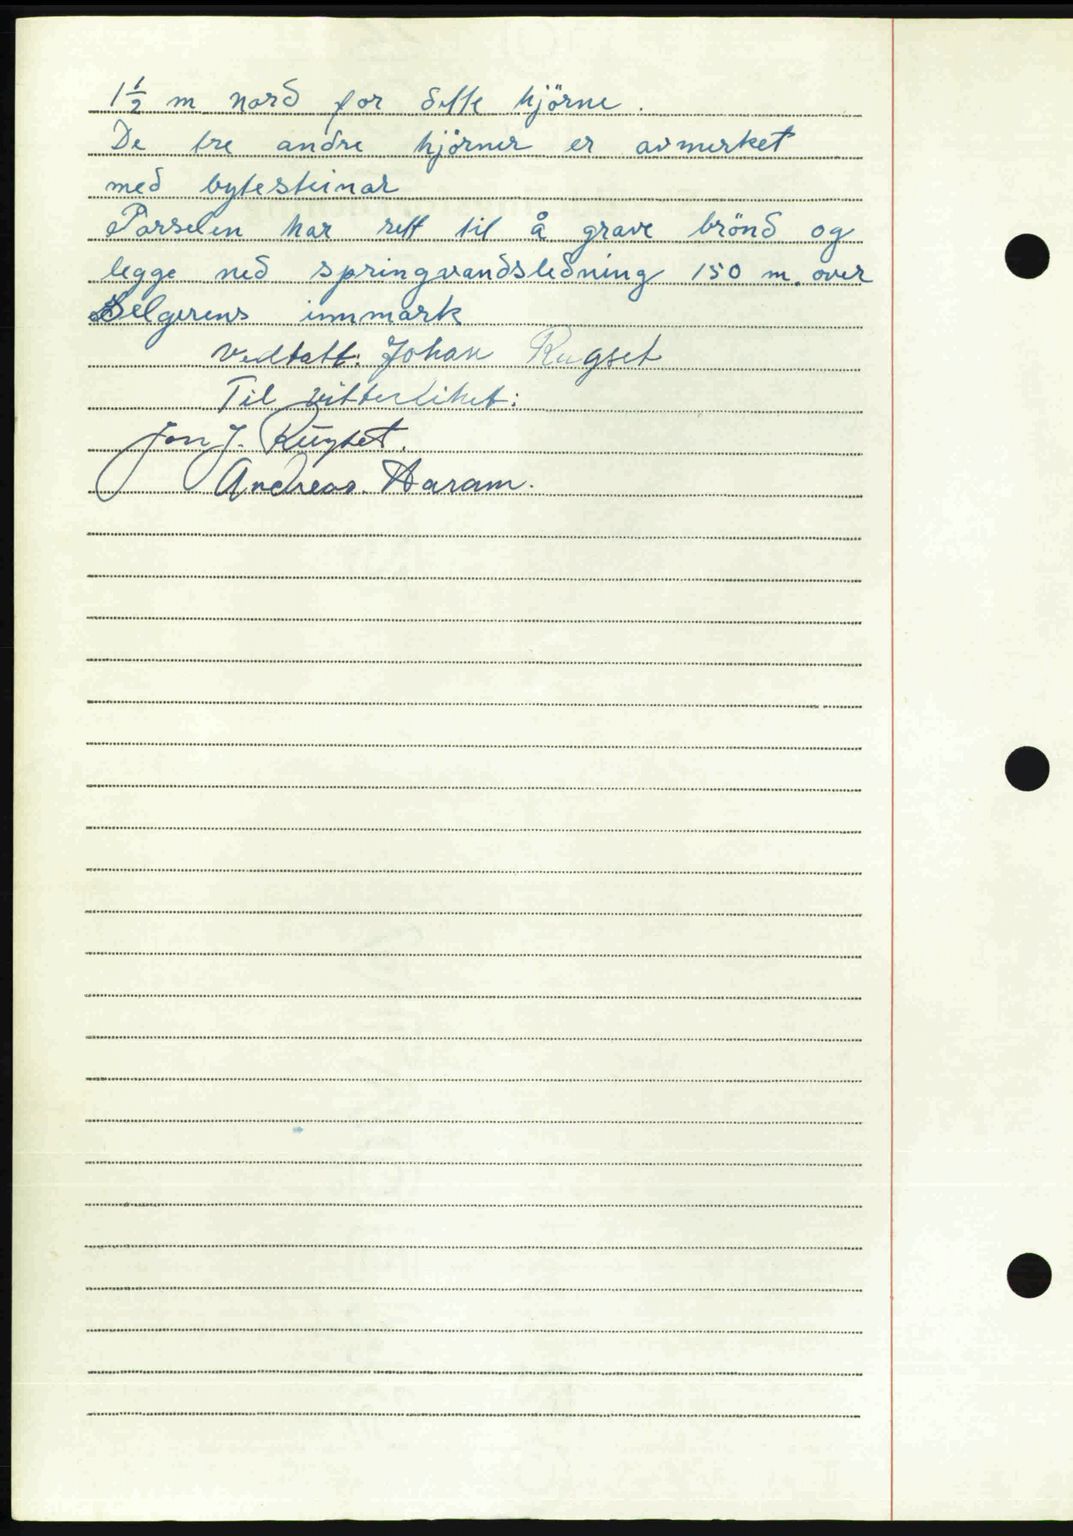 1½ m nord for dette hjörne.
De tre andre hjörner er avmerket
med bytesteinar
Parselen har rett til å grave brönd og
legge ned springvandsledning 150 m. over
Selgerens innmark
Vedtatt: Johan Rugset
Til vitterlihet:
Jon J. Rugset.
Andreas Haram.